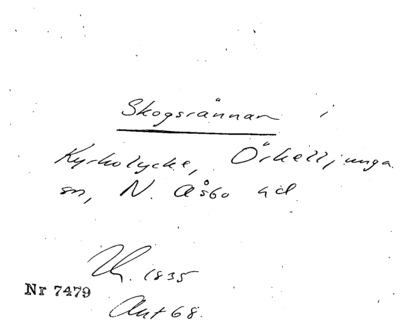 Skogsrännan i
Kyrkolycke, Örkelljunga
sn, N. Åsbo hd
1835
Nr 7479
Aut 68.